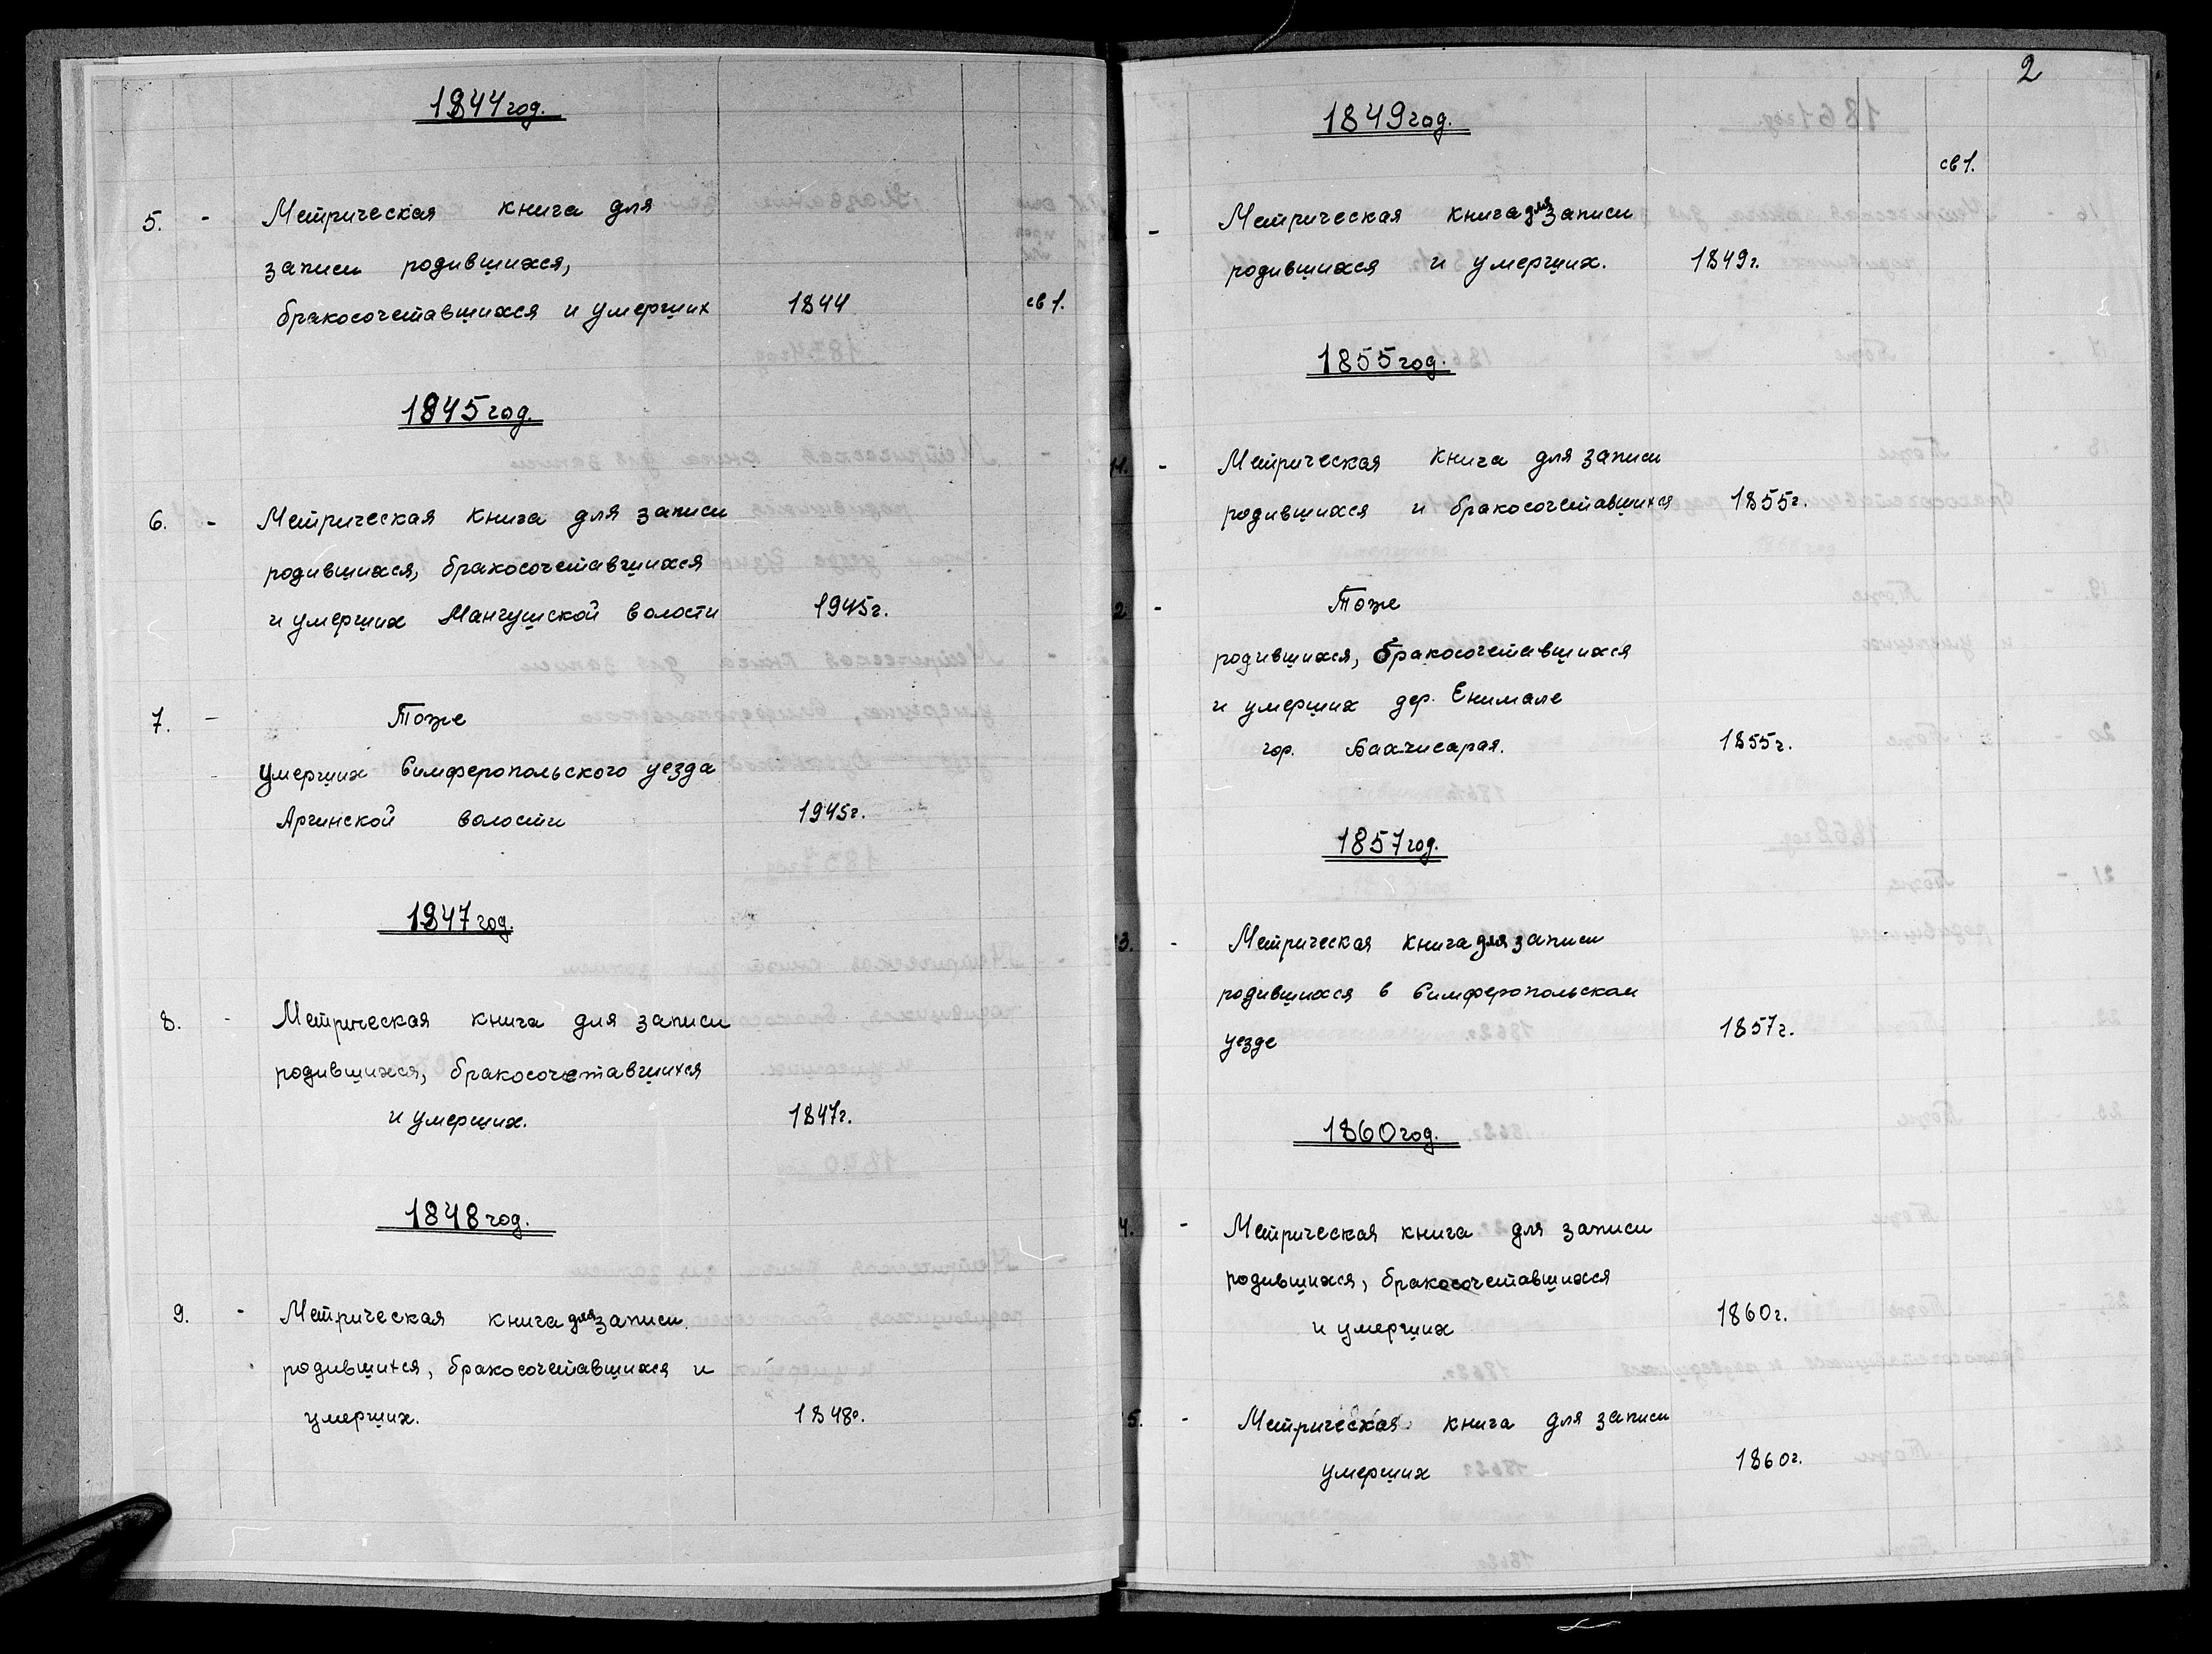 1844 год.
5. - Метрическая книга для
записи родившихся,
бракосочетавшихся и умерших 1844 св 1.
1845 год.
6. - Метрическая книга для записи
родившихся, бракосочетавшихся
и умерших Мангушской волости 1945г.
7. - Тоже
умерших Симферопольского уезда
Аргинской волости 1945г.
1847 год.
8. - Метрическая книга для записи
родившихся, бракосочетавшихся
и умерших. 1847г.
1848 год.
9. - Метрическая книга для записи
родившихся, бракосочетавшихся и
умерших. 1848г.
2
1849 год.
св 1.
- Метрическая книга для записи
родившихся и умерших. 1849г.
1855 год.
11. - Метрическая книга для записи
родившихся и бракосочетавшихся 1855г.
2. - Тоже
родившихся, бракосочетавшихся
и умерших дер. Енимале
гор. Бахчисарая. 1855г.
1857 год.
3. - Метрическая книга для записи
родившихся в Симферопольском
уезде 1857г.
1860 год.
4. - Метрическая книга для записи
родившихся, бракосочетавшихся
и умерших 1860г.
5. - Метрическая книга для записи
умерших 1860г.